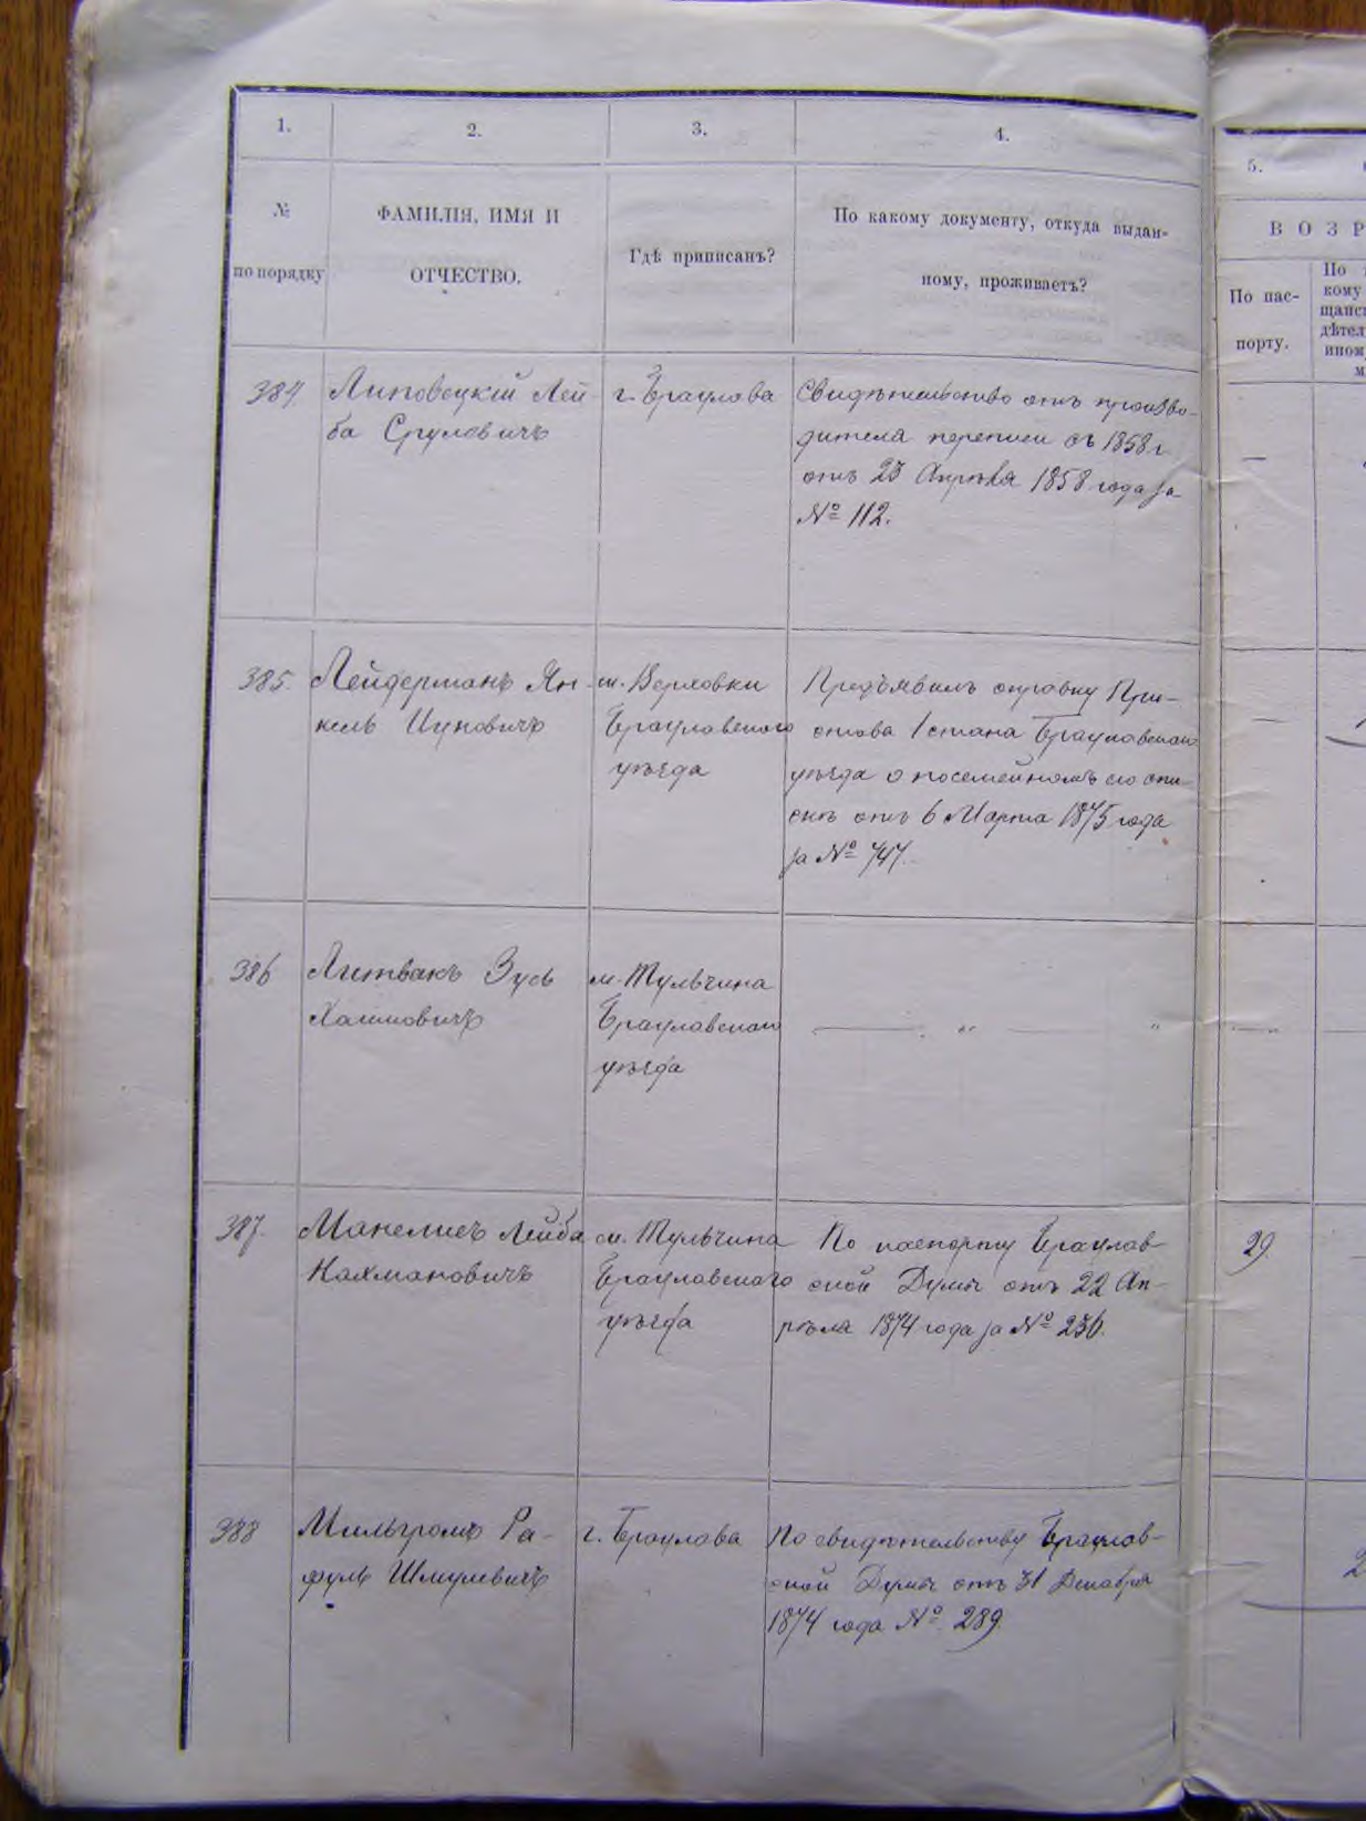 1.
2.
3.
4.
5.
№
по порядку
ФАМИЛІЯ, ИМЯ И
ОТЧЕСТВО.
Гдѣ приписанъ?
По какому документу, откуда выдан-
ному, проживаетъ?
ВОЗР
По пас-
порту.
По
кому
щанс
дѣтел
ином
м
384
Липовецкій Лей-
ба Сруловичъ
г. Брацлава
Свидѣтельство отъ произво-
дителя переписи съ 1858 г
отъ 23 Апрѣля 1858 года за
№ 112.
—
385.
Лейдерманъ Ян-
кель Ицковичъ
м. Верховки
Брацлавского
уѣзда
Предъявилъ справку При-
става 1 стана Брацлавскаго
уѣзда о посемейномъ его спи-
скѣ отъ 6 Марта 1875 года
за № 747.
—
386
Литвакъ Зусь
Хаимовичъ
м. Тульчина
Брацлавскаго
уѣзда
— „ — „
— „
387.
Манелисъ Лейба
Нахмановичъ
м. Тульчина
Брацлавского
уѣзда
По паспорту Брацлав-
ской Думы отъ 22 Ап-
рѣля 1874 года за № 236.
29.
388
Мильгромъ Ра-
фуль Шмулевичъ
г. Брацлава
По свидѣтельству Брацлав-
ской Думы отъ 31 Декабря
1874 года № 289.
—
2